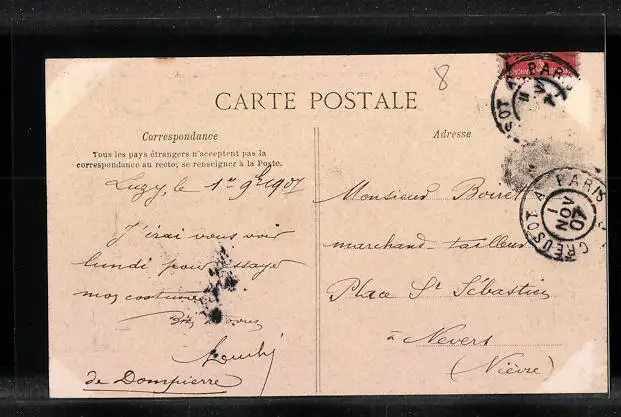 8
CARTE POSTALE
Correspondance
Tous les pays étrangers n'acceptent pas la
correspondance au recto; se renseigner à la Poste.
Luzy, le 1er 9bre 1907
J'irai vous voir
lundi pour essayer
mon costume
de Dompierre
Adresse
Monsieur Boiret
marchand-tailleur
Place St Sébastien
à Nevers
(Nièvre)
CREUSOT A PARIS
1
NOV